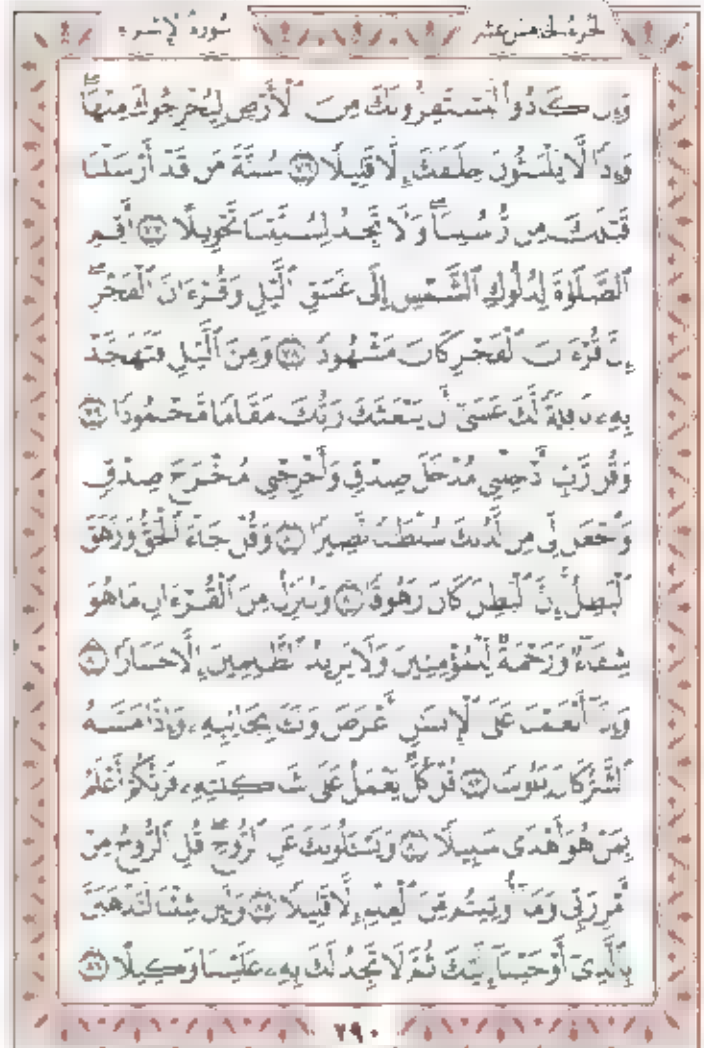 الجزء الخامس عشر سورة الإسراء
وَإِن كَادُوا۟ لَيَسْتَفِزُّونَكَ مِنَ ٱلْأَرْضِ لِيُخْرِجُوكَ مِنْهَا ۖ
وَإِذًا لَّا يَلْبَثُونَ خِلَـٰفَكَ إِلَّا قَلِيلًا ٧٦ سُنَّةَ مَن قَدْ أَرْسَلْنَا
قَبْلَكَ مِن رُّسُلِنَا ۖ وَلَا تَجِدُ لِسُنَّتِنَا تَحْوِيلًا ٧٧ أَقِمِ
ٱلصَّلَوٰةَ لِدُلُوكِ ٱلشَّمْسِ إِلَىٰ غَسَقِ ٱلَّيْلِ وَقُرْءَانَ ٱلْفَجْرِ ۖ
إِنَّ قُرْءَانَ ٱلْفَجْرِ كَانَ مَشْهُودًا ٧٨ وَمِنَ ٱلَّيْلِ فَتَهَجَّدْ
بِهِۦ نَافِلَةً لَّكَ عَسَىٰٓ أَن يَبْعَثَكَ رَبُّكَ مَقَامًا مَّحْمُودًا ٧٩
وَقُل رَّبِّ أَدْخِلْنِى مُدْخَلَ صِدْقٍ وَأَخْرِجْنِى مُخْرَجَ صِدْقٍ
وَٱجْعَل لِّى مِن لَّدُنكَ سُلْطَـٰنًا نَّصِيرًا ٨٠ وَقُلْ جَآءَ ٱلْحَقُّ وَزَهَقَ
ٱلْبَـٰطِلُ ۚ إِنَّ ٱلْبَـٰطِلَ كَانَ زَهُوقًا ٨١ وَنُنَزِّلُ مِنَ ٱلْقُرْءَانِ مَا هُوَ
شِفَآءٌ وَرَحْمَةٌ لِّلْمُؤْمِنِينَ ۙ وَلَا يَزِيدُ ٱلظَّـٰلِمِينَ إِلَّا خَسَارًا ٨٢
وَإِذَآ أَنْعَمْنَا عَلَى ٱلْإِنسَـٰنِ أَعْرَضَ وَنَـَٔا بِجَانِبِهِۦ ۖ وَإِذَا مَسَّهُ
ٱلشَّرُّ كَانَ يَـُٔوسًا ٨٣ قُلْ كُلٌّ يَعْمَلُ عَلَىٰ شَاكِلَتِهِۦ فَرَبُّكُمْ أَعْلَمُ
بِمَنْ هُوَ أَهْدَىٰ سَبِيلًا ٨٤ وَيَسْـَٔلُونَكَ عَنِ ٱلرُّوحِ ۖ قُلِ ٱلرُّوحُ مِنْ
أَمْرِ رَبِّى وَمَآ أُوتِيتُم مِّنَ ٱلْعِلْمِ إِلَّا قَلِيلًا ٨٥ وَلَئِن شِئْنَا لَنَذْهَبَنَّ
بِٱلَّذِىٓ أَوْحَيْنَآ إِلَيْكَ ثُمَّ لَا تَجِدُ لَكَ بِهِۦ عَلَيْنَا وَكِيلًا ٨٦
٢٩٠